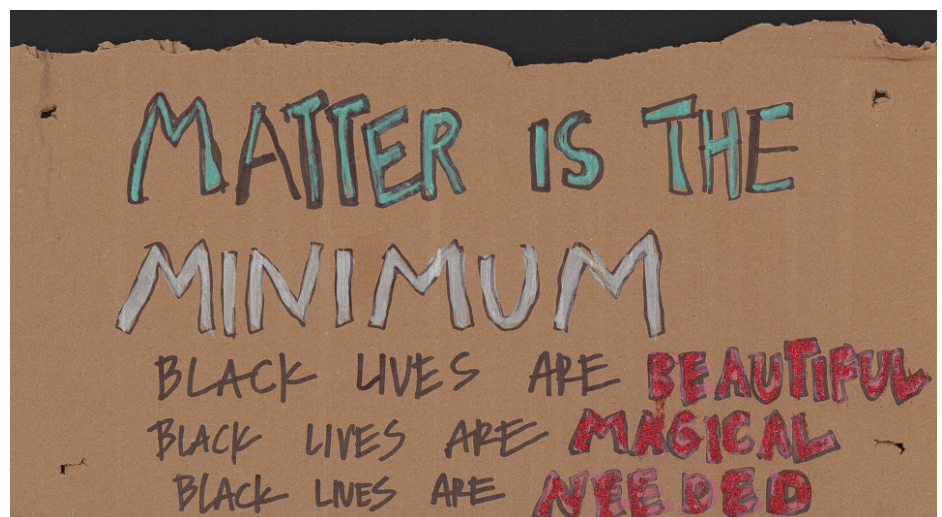 MATTER IS THE
MINIMUM
BLACK LIVES ARE BEAUTIFUL
BLACK LIVES ARE MAGICAL
BLACK LIVES ARE NEEDED